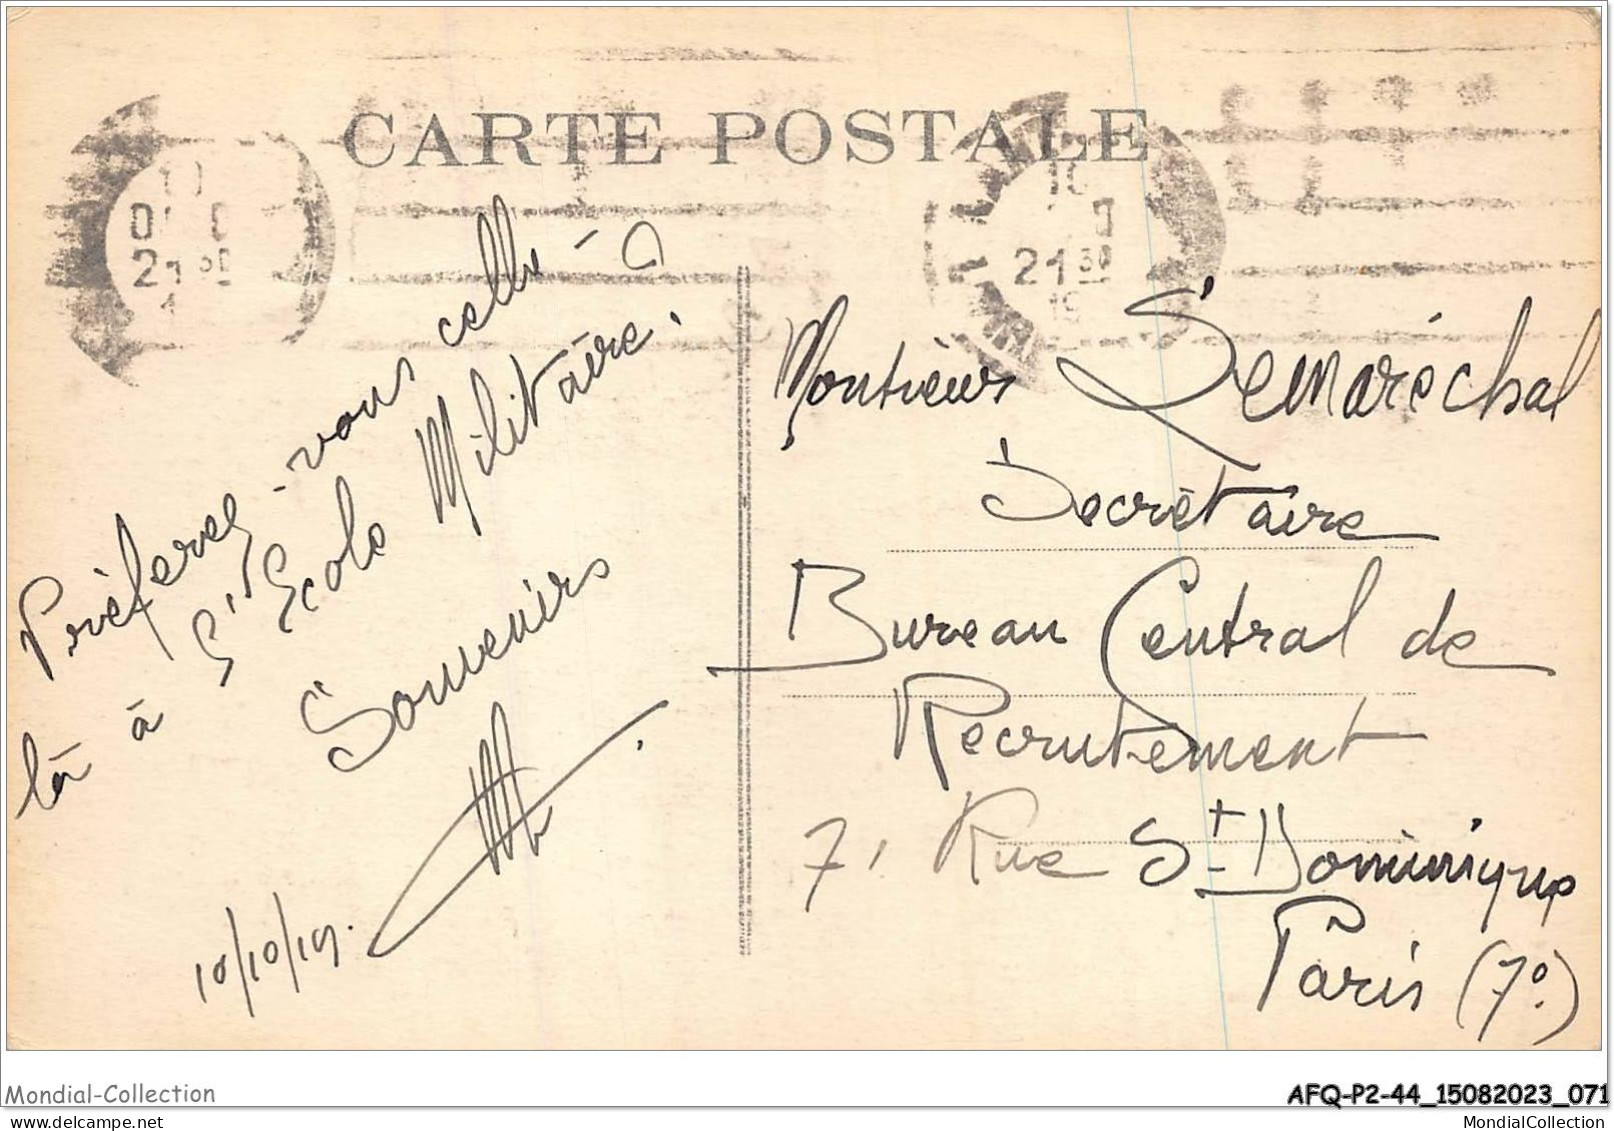 CARTE POSTALE
10
21 30
19
21 30
Préferez-vous celle-
là à l'Ecole Militaire.
Souvenirs
10/10/19.
Monsieur Lemaréchal
Secrétaire
Bureau Central de
Recrutement
7, Rue St Dominique
Paris (7e)
Mondial-Collection
AFQ-P2-44_15082023_071
www.delcampe.net
MondialCollection